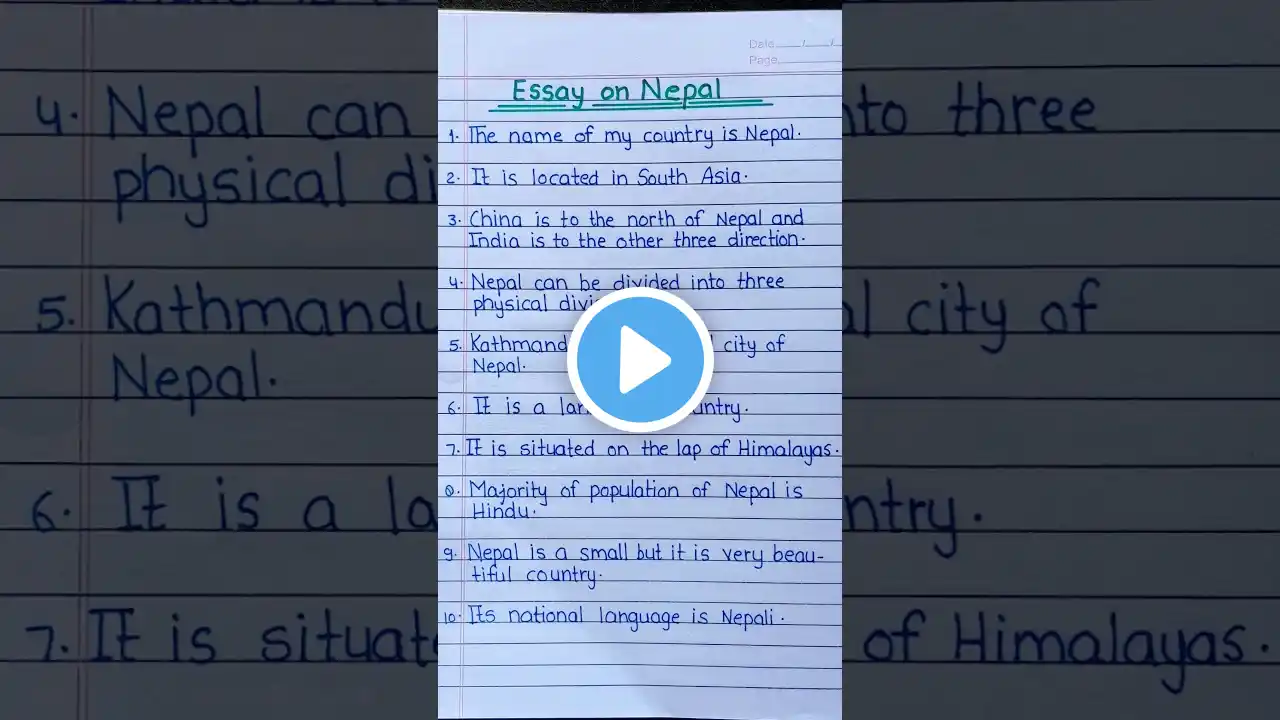 Date / /
Page
Essay on Nepal
1. The name of my country is Nepal.
2. It is located in South Asia.
3. China is to the north of Nepal and
India is to the other three direction.
4. Nepal can be divided into three
physical
5. city of
Nepal.
6. It is a
7. It is situated on the lap of Himalayas.
8. Majority of population of Nepal is
Hindu.
9. Nepal is a small but it is very beau-
tiful country.
10. Its national language is Nepali.
4. Nepal can
physical
5.
Nepal.
6. It is a
7. It is
three
city of
of Himalayas.